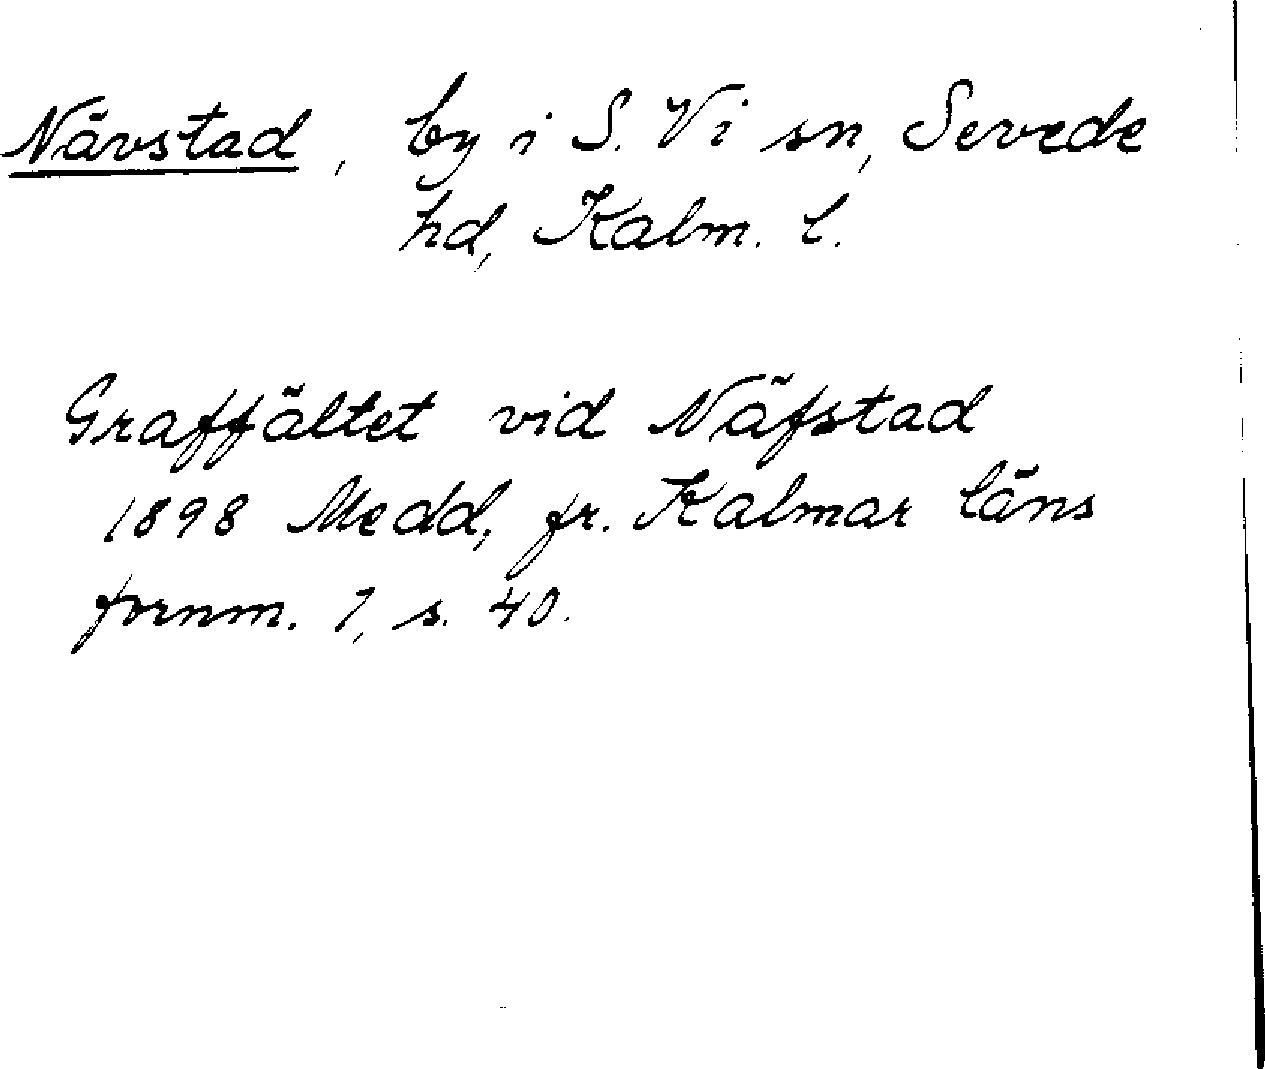 Nävstad, by i S. Vi sn, Sevede
hd, Kalm. l.
Graffältet vid Näfstad
1898 Medd. fr. Kalmar läns
fornm. 1, s. 40.